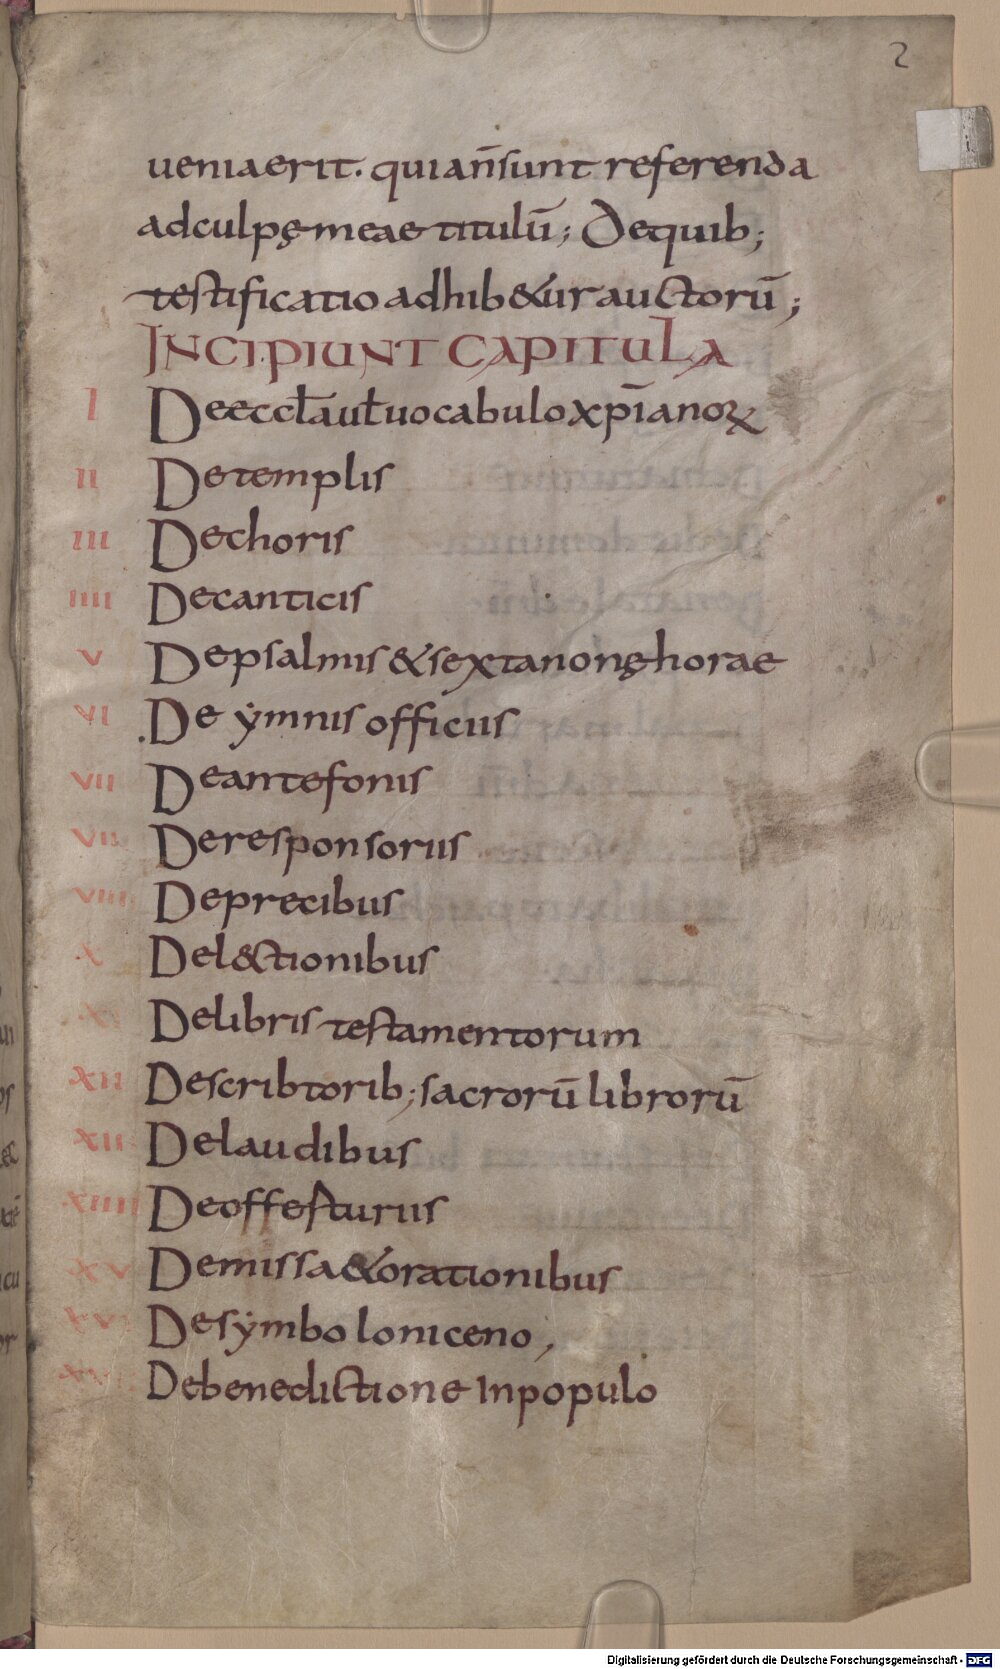 2
ueniaerit. quian̄sunt referenda
adculpęmeae titulū; Dequib;
testificatio adhib&ur auctorū;
INCIPIUNT CAPITULA
I Deeccła aut uocabulo xp̄ianoꝝ
II Detemplis
III Dechoris
IIII Decanticis
V Depsalmis & sextanonęhorae
VI De ẏmnis officiis
VII Deantefonis
VIII Deresponsoriis
VIIII Deprecibus
X Del&tionibus
X Delibris testamentorum
XII Describtorib; sacrorū librorū
XII Delaudibus
XIIII Deoffesturiis
XV Demissa & orationibus
XVI Desẏmbolo niceno,
XVII Debenedictione inpopulo
Digitalisierung gefördert durch die Deutsche Forschungsgemeinschaft - DFG